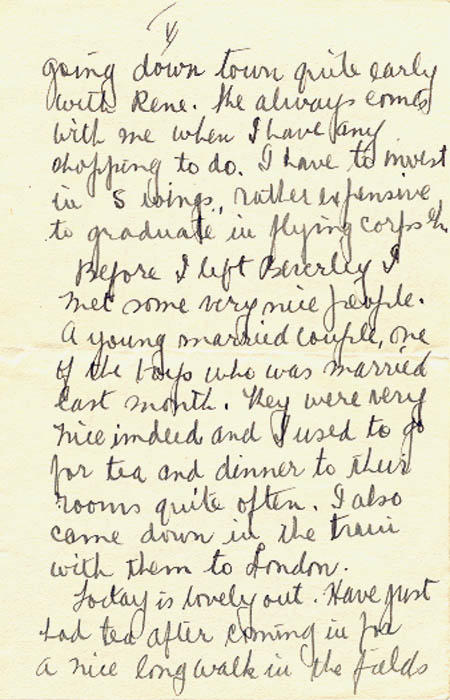 V
going down town quite early
with Rene. He always comes
with me when I have any
shopping to do. I have to invest
in 5 wings, rather expensive
to graduate in flying corps eh
Before I left Beverley I
met some very nice people.
A young married couple, one
of the boys who was married
last month. They were very
nice indeed and I used to go
for tea and dinner to their
rooms quite often. I also
came down in the train
with them to London.
Today is lovely out. Have just
had tea after coming in for
a nice long walk in the fields